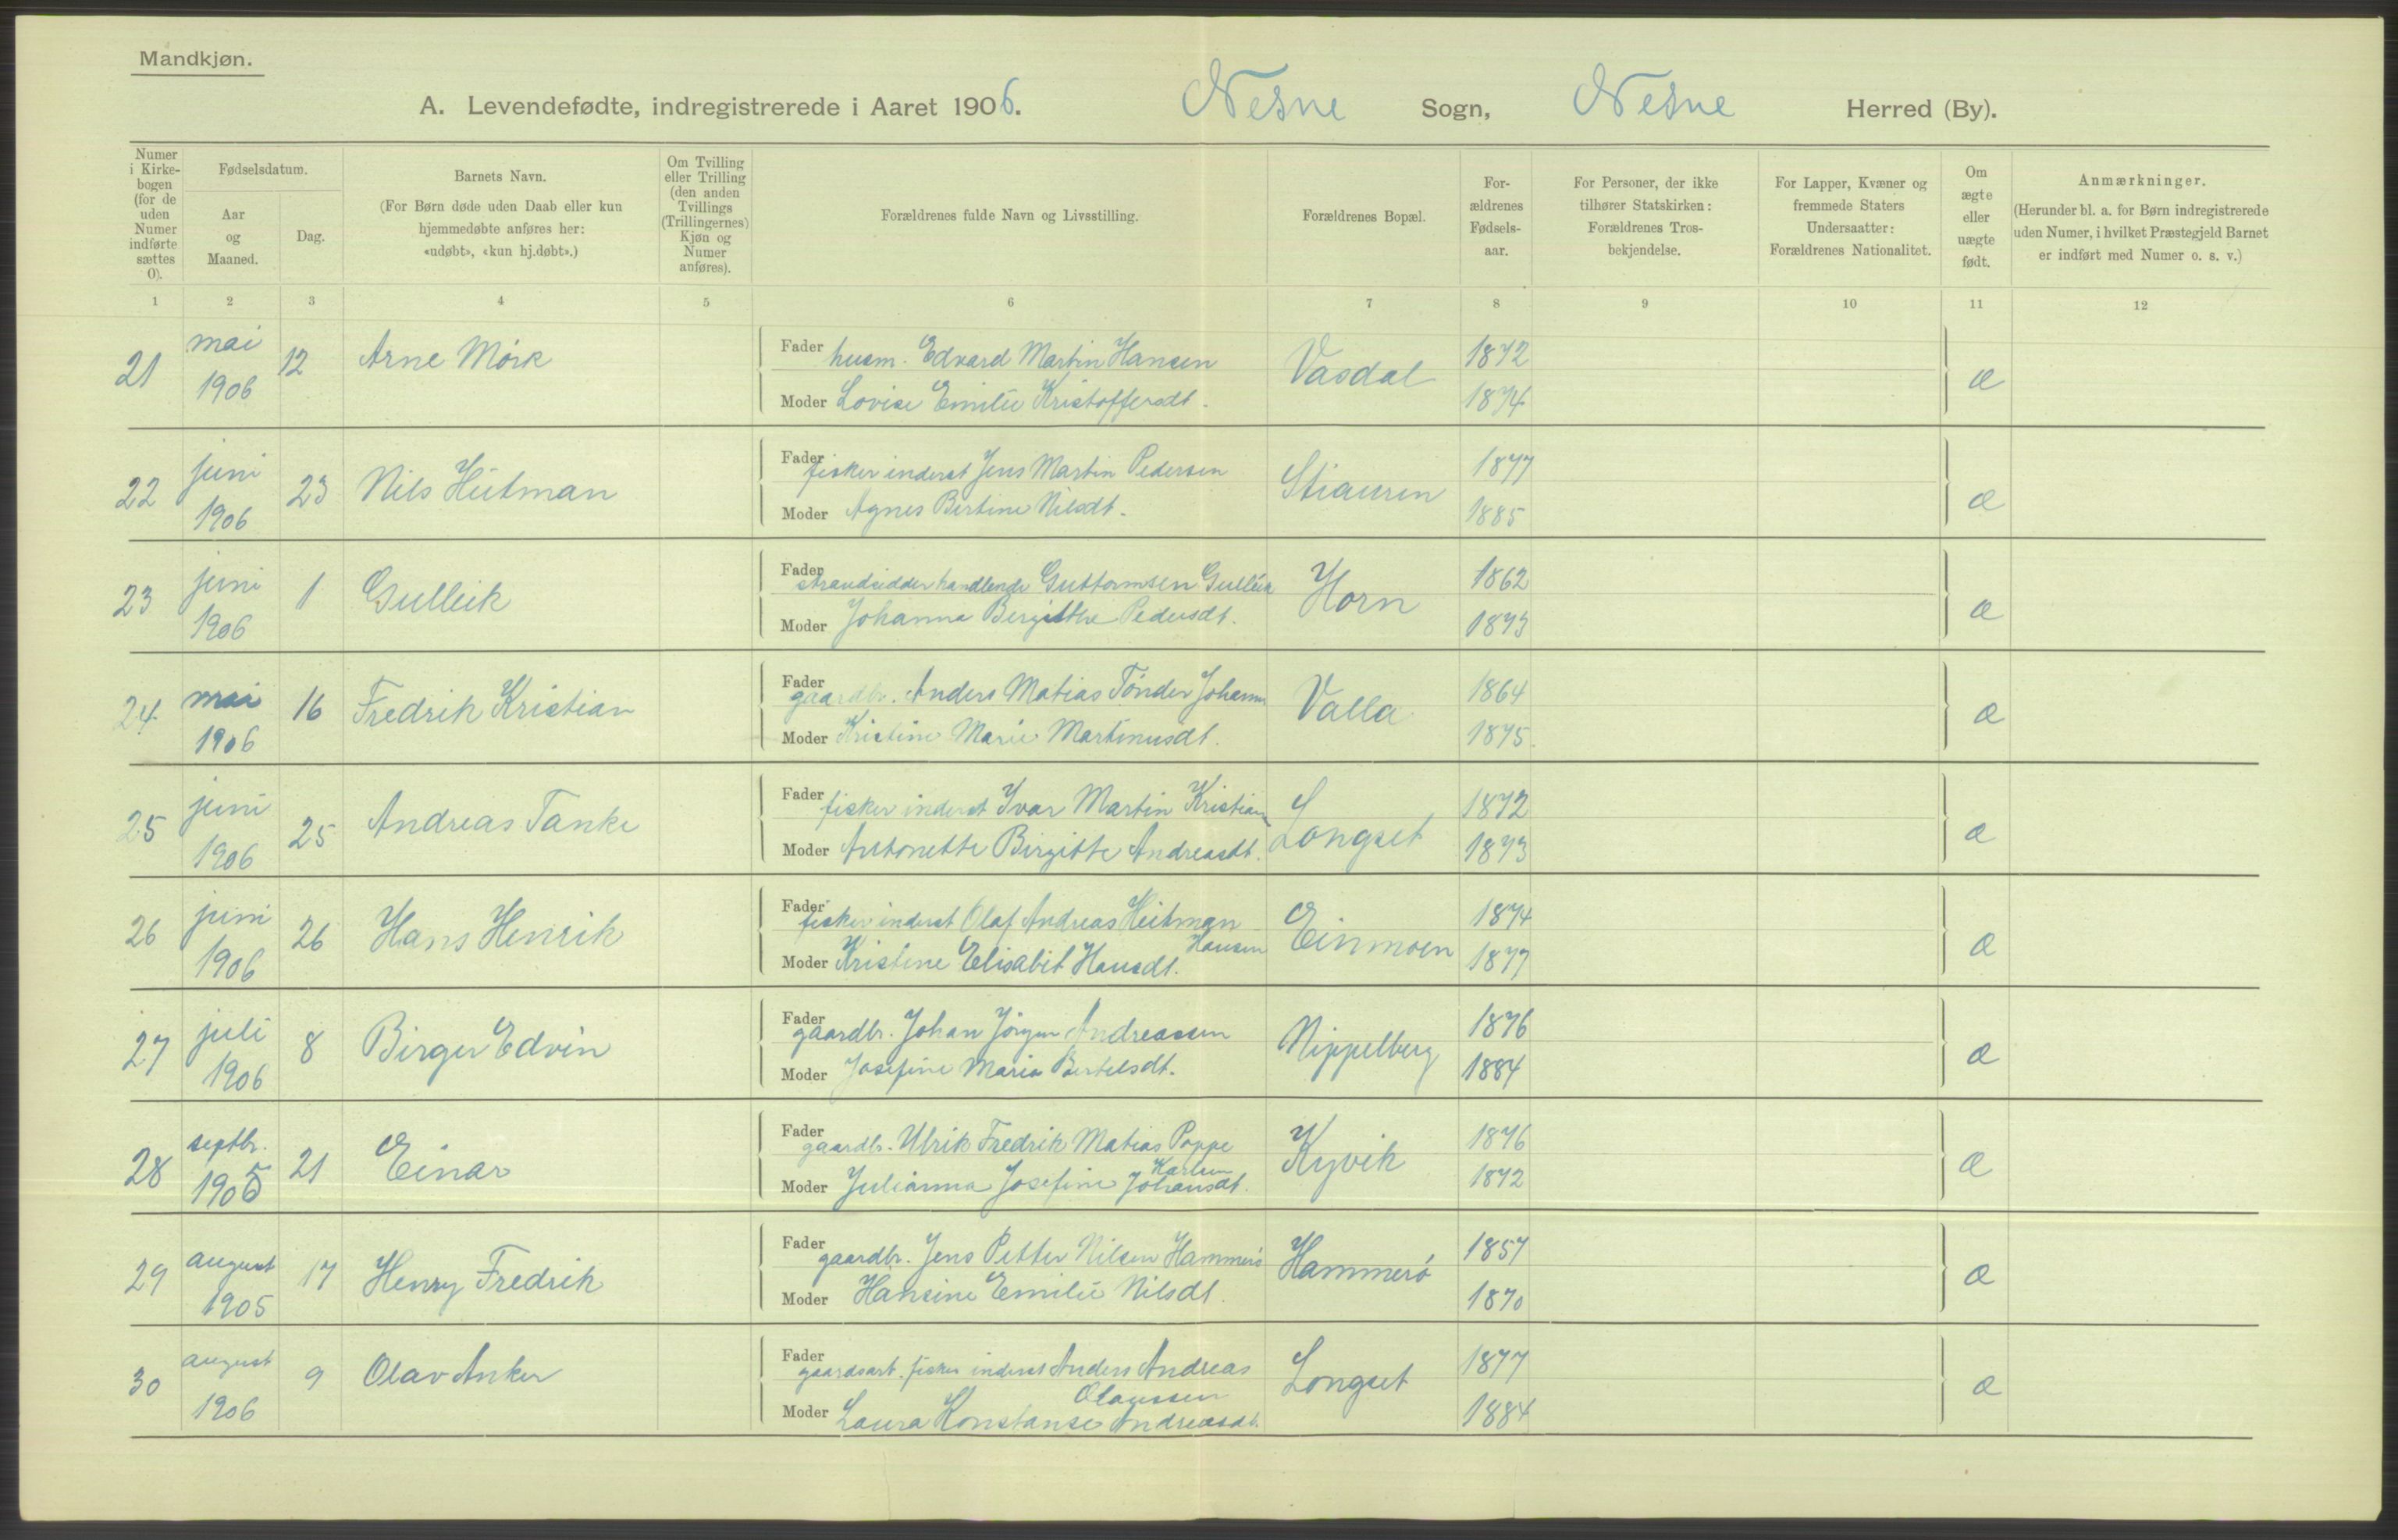 Mandkjøn.
A. Levendefødte, indregistrerede i Aaret 1906. Nesne Sogn, Nesne Herred (By).
Numer i Kirkebogen (for de uden Numer indførte sættes 0).
Fødselsdatum.
Aar og Maaned.
Dag.
Barnets Navn.
(For Børn døde uden Daab eller kun
hjemmedøbte anføres her:
«udøbt», «kun hj.døbt».)
Om Tvilling
eller Trilling
(den anden
Tvillings
(Trillingernes)
Kjøn og
Numer
anføres).
Forældrenes fulde Navn og Livsstilling.
Forældrenes Bopæl.
For-
ældrenes
Fødsels-
aar.
For Personer, der ikke
tilhører Statskirken:
Forældrenes Tros-
bekjendelse.
For Lapper, Kvæner og
fremmede Staters
Undersaatter:
Forældrenes Nationalitet.
Om
ægte
eller
uægte
født.
Anmærkninger.
(Herunder bl. a. for Børn indregistrerede
uden Numer, i hvilket Præstegjeld Barnet
er indført med Numer o. s. v.)
1 2 3 4 5 6 7 8 9 10 11 12
21 mai 1906 12 Arne Mörk
Fader husm. Edvard Martin Hansen Vasdal 1872 æ
Moder Lovise Emilie Kristoffersdt. 1874
22 juni 1906 23 Nils Heitman
Fader fisker inderst Jens Martin Pedersen Stiauren 1877 æ
Moder Agnes Bertine Nilsdt. 1885
23 juni 1906 1 Gulleik
Fader strandsidder handlende Guttormsen Gulleik Horn 1862 æ
Moder Johanna Bergitthe Pedersdt. 1873
24 mai 1906 16 Fredrik Kristian
Fader gaardbr. Anders Matias Tönder Johanns Valla 1864 æ
Moder Kristine Marie Martinusdt. 1875
25 juni 1906 25 Andreas Tanke
Fader fisker inderst Ivar Martin Kristians Longset 1872 æ
Moder Antonette Birgitte Andreasdt. 1873
26 juni 1906 26 Hans Henrik
Fader fisker inderst Olaf Andreas Heitman Einmoen 1874 æ
Hansen
Moder Kristine Elisabet Hansdt. 1877
27 juli 1906 8 Birger Edvin
Fader gaardbr. Johan Jörgen Andreassen Nippelberg 1876 æ
Moder Josefine Maria Bertelsdt. 1884
28 septbr. 1905 21 Einar
Fader gaardbr. Ulrik Fredrik Matias Poppe Kyvik 1876 æ
Karlsen
Moder Julianna Josefine Johansdt. 1872
29 august 1905 17 Henry Fredrik
Fader gaardbr. Jens Petter Nilsen Hammerö Hammerö 1857 æ
Moder Hansine Emilie Nilsdt. 1870
30 august 1906 9 Olav Anker
Fader gaardsarb. fisker inderst Anders Andreas Longset 1877 æ
Olaussen
Moder Laura Konstanse Andreasdt. 1884